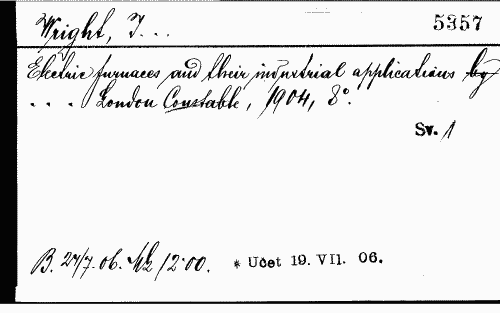 Wright, J... 5357
Electric furnaces and their industrial applications by
... London Constable, 1904, 8°.
Sv. 1
B. 27/7. 06. Mk 12·00. * Učet 19. VII. 06.